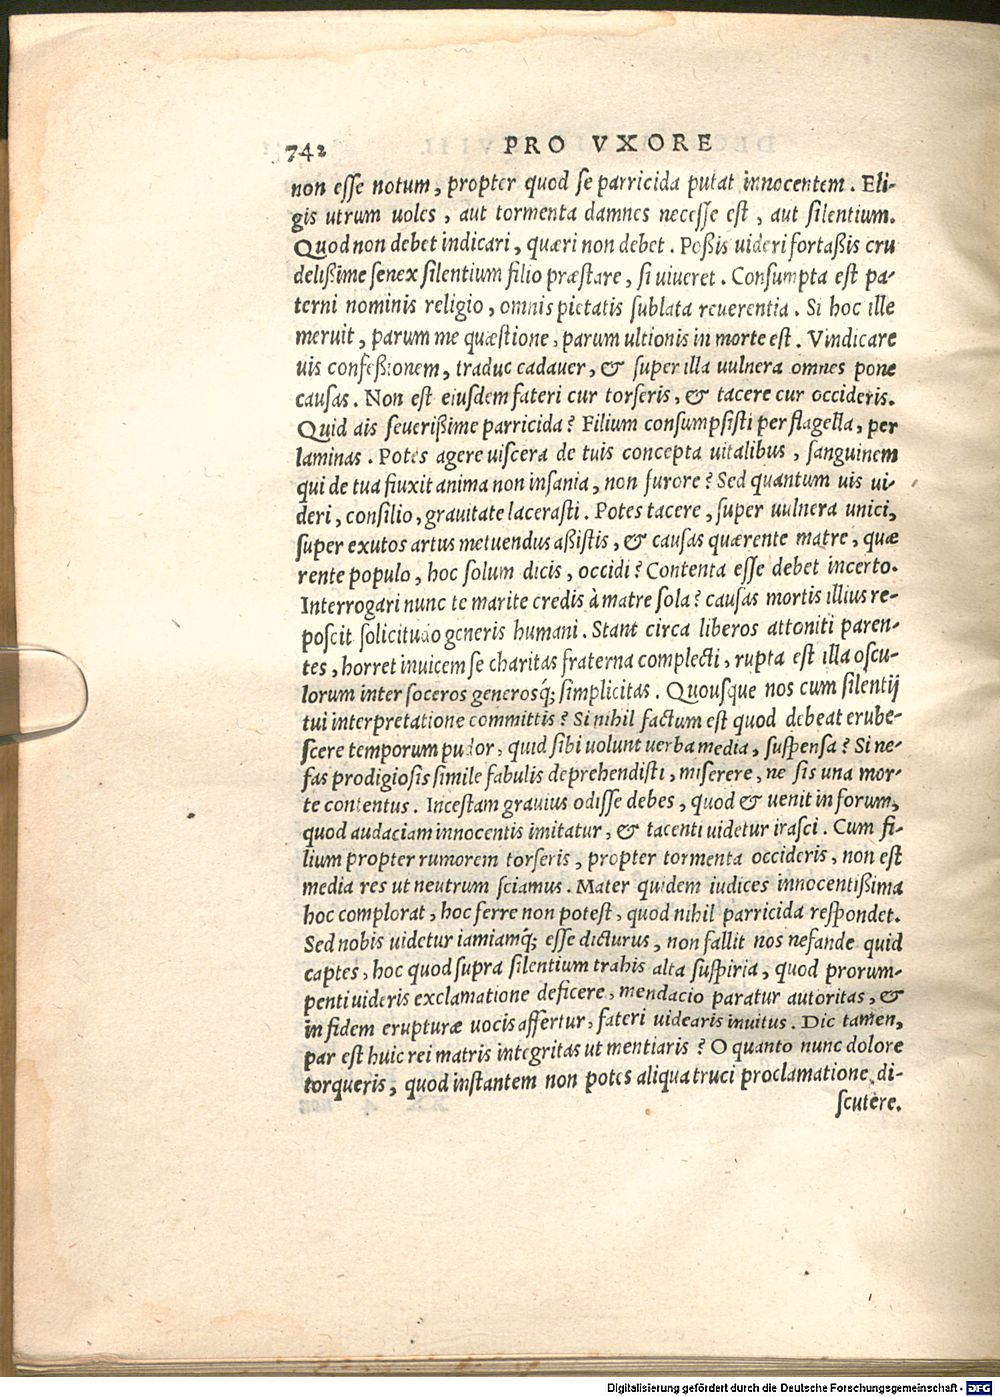 742 PRO VXORE
non esse notum, propter quod se parricida putat innocentem. Eli-
gis utrum uoles, aut tormenta damnes necesse est, aut silentium.
Quod non debet indicari, quæri non debet. Poßis uideri fortaßis cru
delißime senex silentium filio præstare, si uiueret. Consumpta est pa-
terni nominis religio, omnis pietatis sublata reuerentia. Si hoc ille
meruit, parum me quæstione, parum ultionis in morte est. Vindicare
uis confeßionem, traduc cadauer, & super illa uulnera omnes pone
causas. Non est eiusdem fateri cur torseris, & tacere cur occideris.
Quid ais seuerißime parricida? Filium consumpsisti per flagella, per
laminas. Potes agere uiscera de tuis concepta uitalibus, sanguinem
qui de tua fluxit anima non insania, non furore? Sed quantum uis ui-
deri, consilio, grauitate lacerasti. Potes tacere, super uulnera unici,
super exutos artus metuendus aßistis, & causas quærente matre, quæ
rente populo, hoc solum dicis, occidi? Contenta esse debet incerto.
Interrogari nunc te marite credis à matre sola? causas mortis illius re-
poscit solicitudo generis humani. Stant circa liberos attoniti paren-
tes, horret inuicem se charitas fraterna complecti, rupta est illa oscu-
lorum inter soceros generosq́; simplicitas. Quousque nos cum silentij
tui interpretatione committis? Si nihil factum est quod debeat erube-
scere temporum pudor, quid sibi uolunt uerba media, suspensa? Si ne-
fas prodigiosis simile fabulis deprehendisti, miserere, ne sis una mor-
te contentus. Incestam grauius odisse debes, quod & uenit in forum,
quod audaciam innocentis imitatur, & tacenti uidetur irasci. Cum fi-
lium propter rumorem torseris, propter tormenta occideris, non est
media res ut neutrum sciamus. Mater quidem iudices innocentißima
hoc complorat, hoc ferre non potest, quod nihil parricida respondet.
Sed nobis uidetur iamiamq́; esse dicturus, non fallit nos nefande quid
captes, hoc quod supra silentium trahis alta suspiria, quod prorum-
penti uideris exclamatione deficere, mendacio paratur autoritas, &
in fidem erupturæ uocis affertur, fateri uidearis inuitus. Dic tamen,
par est huic rei matris integritas ut mentiaris? O quanto nunc dolore
torqueris, quod instantem non potes aliqua truci proclamatione di-
scutere.
Digitalisierung gefördert durch die Deutsche Forschungsgemeinschaft - DFG